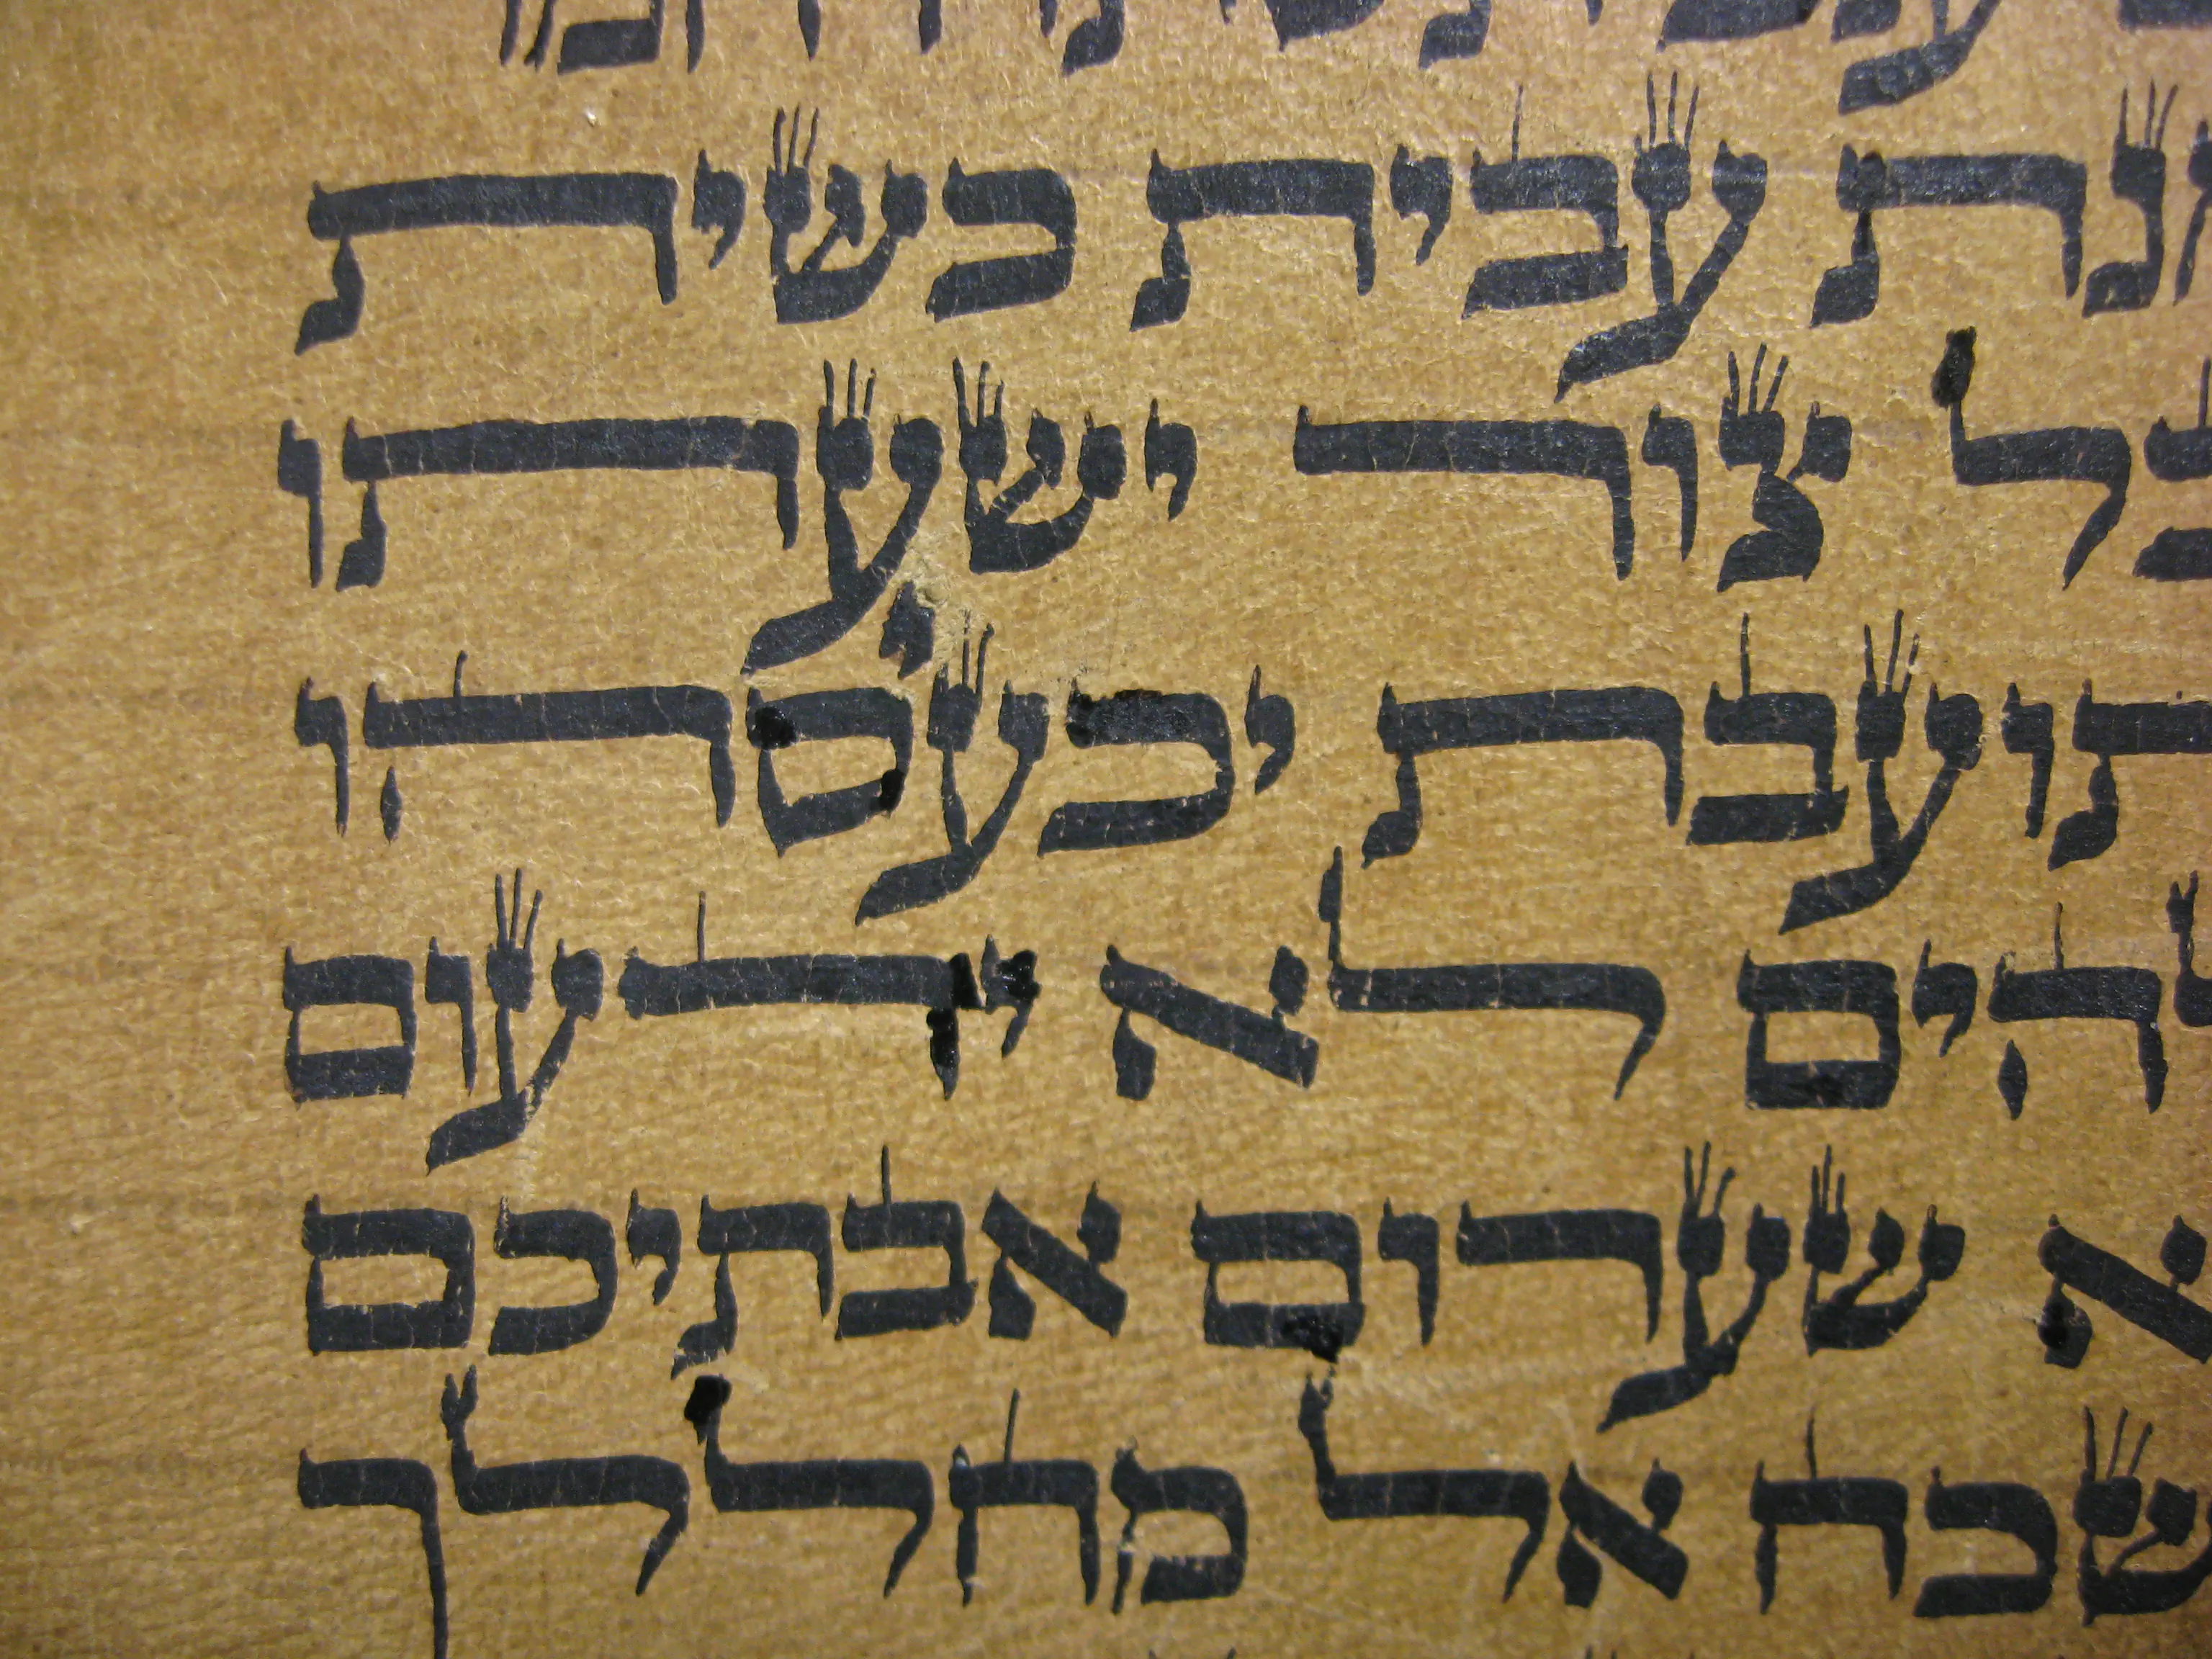 נת עבית כשית
בל צור ישעתו
תועבת יכעסהו
להים לא ידעום
א שערום אבתיכם
שכח אל מחללך